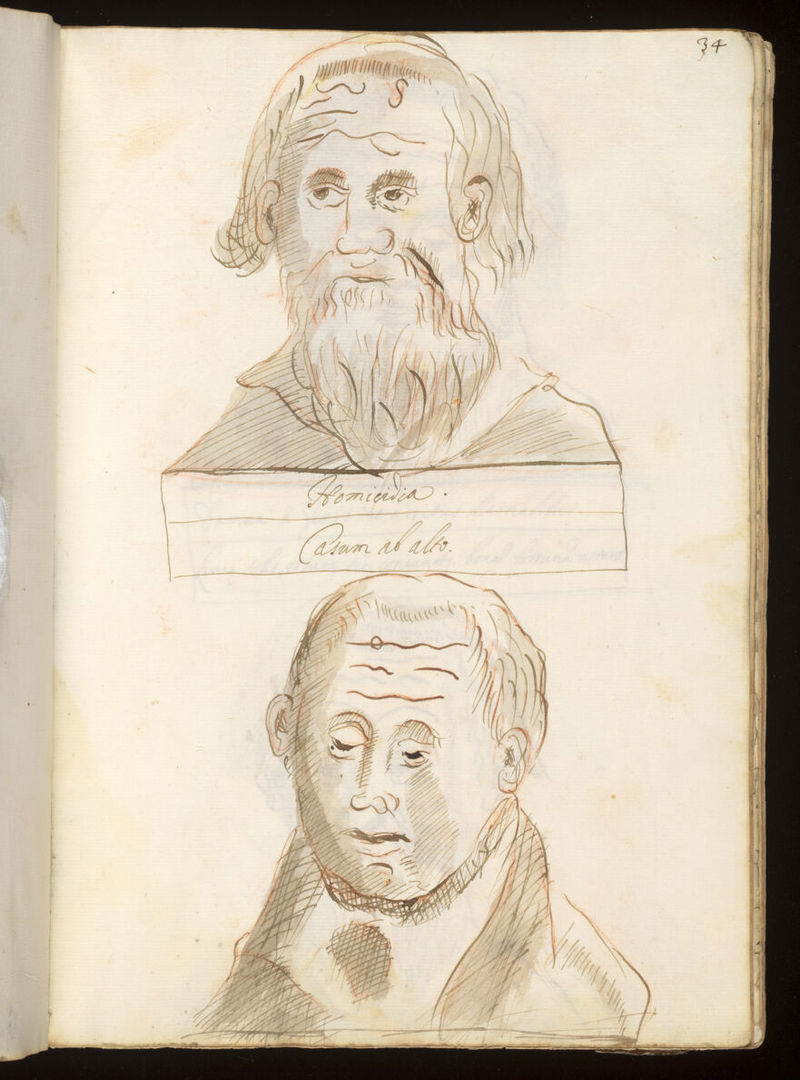 34
Homicidia.
Casum ab alto.